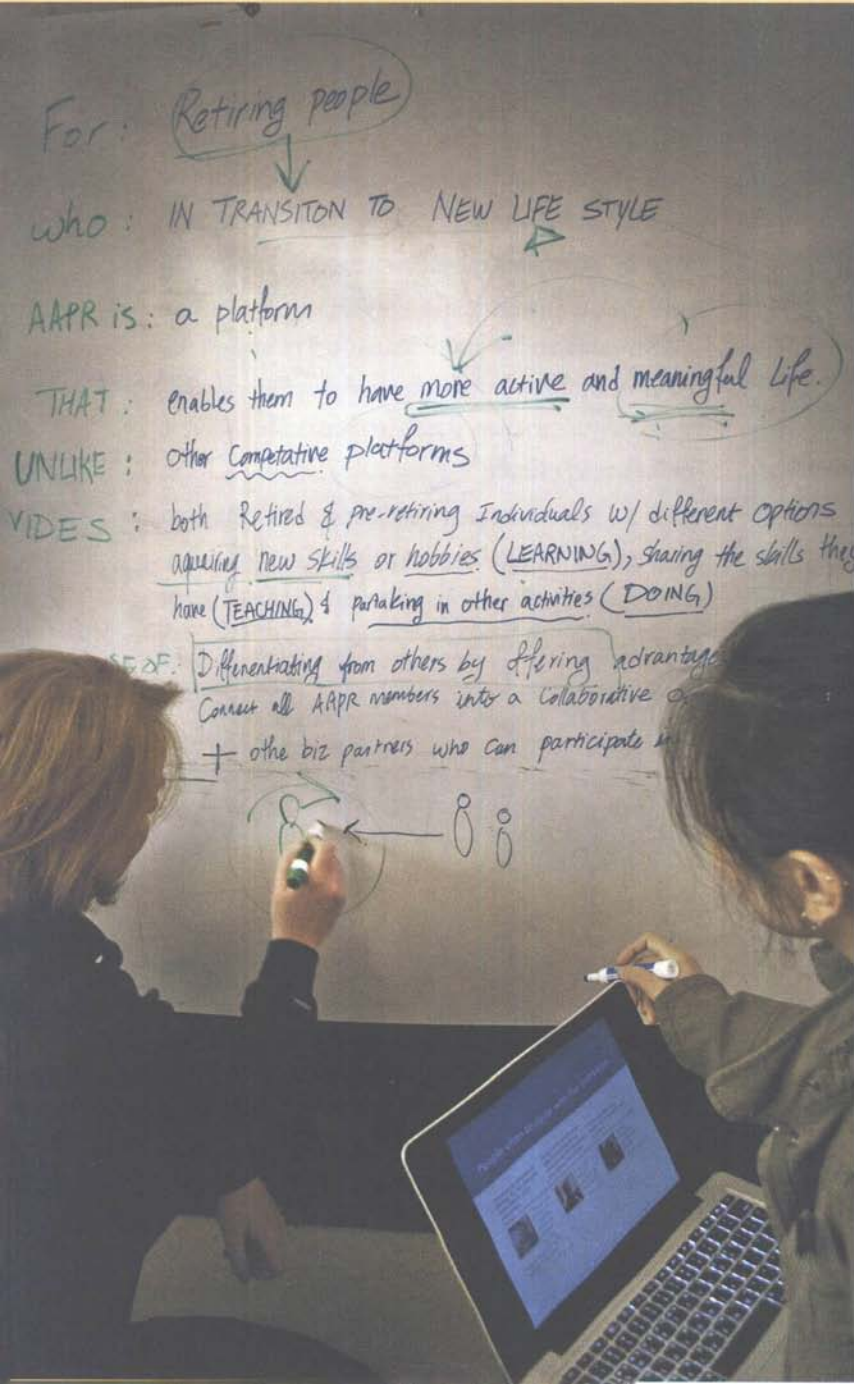 For: Retiring people
who: IN TRANSITON TO NEW LIFE STYLE
AAPR is: a platform
THAT: enables them to have more active and meaningful Life.
UNLIKE: other Competative platforms
VIDES: both Retired & pre-retiring Individuals w/ different options
aquairing new skills or hobbies (LEARNING), sharing the skills they
have (TEACHING) & partaking in other activities (DOING)
SE OF: Differentiating from others by offering advantage
Connect all AAPR members into a Collaborative
+ othe biz partners who can participate